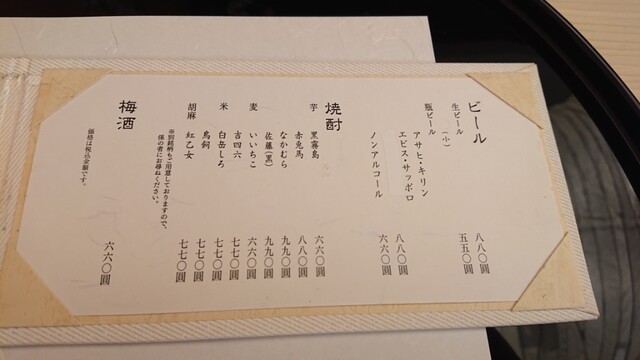 ビール
生ビール 八八〇圓
(小) 五五〇圓
瓶ビール
アサヒ・キリン
エビス・サッポロ 八八〇圓
ノンアルコール 六六〇圓
焼酎
芋 黒霧島 六六〇圓
赤兎馬 八八〇圓
なかむら 九九〇圓
佐藤(黒) 九九〇圓
麦 いいちこ 六六〇圓
吉四六 七七〇圓
米 白岳しろ 七七〇圓
鳥飼 七七〇圓
胡麻 紅乙女 七七〇圓
※別銘柄もご用意しておりますので、
係の者にお尋ねください。
梅酒 六六〇圓
価格は税込金額です。